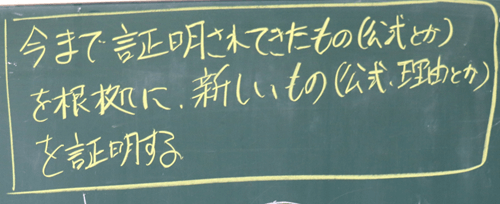 今まで証明されてきたもの(公式とか)
を根拠に、新しいもの(公式、理由とか)
を証明する